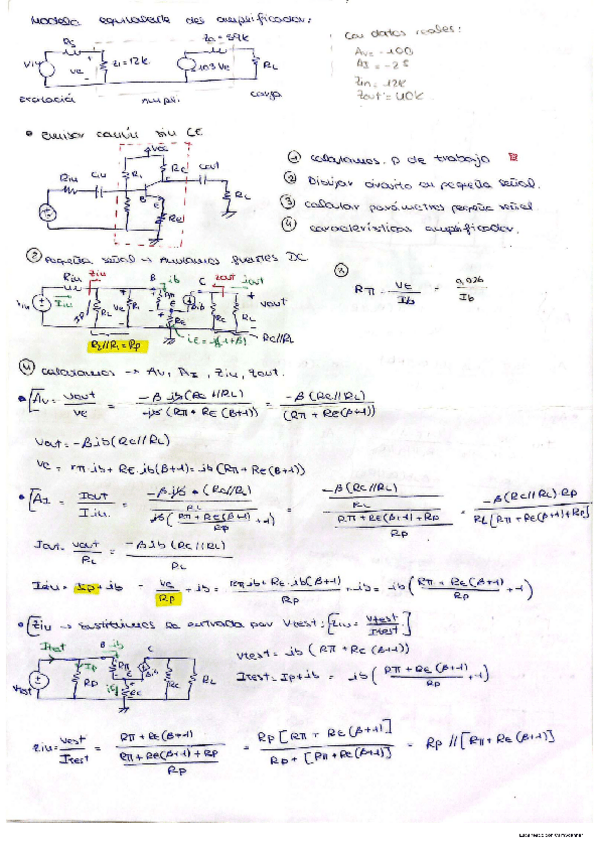 Modelo equivalente del amplificador:
Con datos reales:
Zo = 39K
Rs
Vi
Ve
Zi = 12K
103 Ve
RL
Ave = 100
AI = -25
Zin = 12K
Zout = 40K
excitación
ampli.
carga
• Emisor común sin CE
Vcc
Rin
Cin
R1
Rc
Cout
RL
B
E
RE
① calculamos p de trabajo
② Dibujar circuito en pequeña señal.
③ calcular parámetros pequeña señal.
④ características amplificador.
② Pequeña señal → Anulamos fuentes DC.
③
Rπ = Ve/Ib = 0,026/Ib
Rin
Zin
B
ib
C
Zout
iout
Iin
Ve
R1
Rπ
βib
RE
Rc
RL
Vout
R2//R1 = Rp
Rc//RL
④ calculamos → Av, AI, Zin, Zout.
• Av = Vout/Ve = -β ib (Rc//RL) / ib (Rπ + RE (β+1)) = -β (Rc//RL) / (Rπ + RE(β+1))
Vout = -β ib (Rc//RL)
Ve = rπ·ib + RE·ib(β+1) = ib (Rπ + RE(β+1))
• AI = Iout/Iin = -β·ib·(Rc//RL)/RL / ib(Rπ+RE(β+1)/Rp +1) = -β(Rc//RL)/RL / Rπ+RE(β+1)+Rp/Rp = -β(Rc//RL)·Rp / RL[Rπ+RE(β+1)+Rp]
Iout = Vout/RL = -β ib (Rc//RL)/RL
Iin = Ip + ib = Ve/Rp + ib = rπ·ib + RE·ib(β+1)/Rp + ib = ib (Rπ + RE(β+1)/Rp + 1)
• Zin → sustituimos la entrada por Vtest: [Zin = Vtest/Itest]
Itest
B
ib
C
Vtest
Ip
Rp
Rπ
Rc
RL
Vtest = ib (Rπ + RE(β+1))
Itest = Ip + ib = ib (Rπ + RE(β+1)/Rp + 1)
Zin = Vtest/Itest = Rπ + RE(β+1) / Rπ+RE(β+1)+Rp/Rp = Rp [Rπ + RE(β+1)] / Rp + [Rπ + RE(β+1)] = Rp // [Rπ + RE(β+1)]